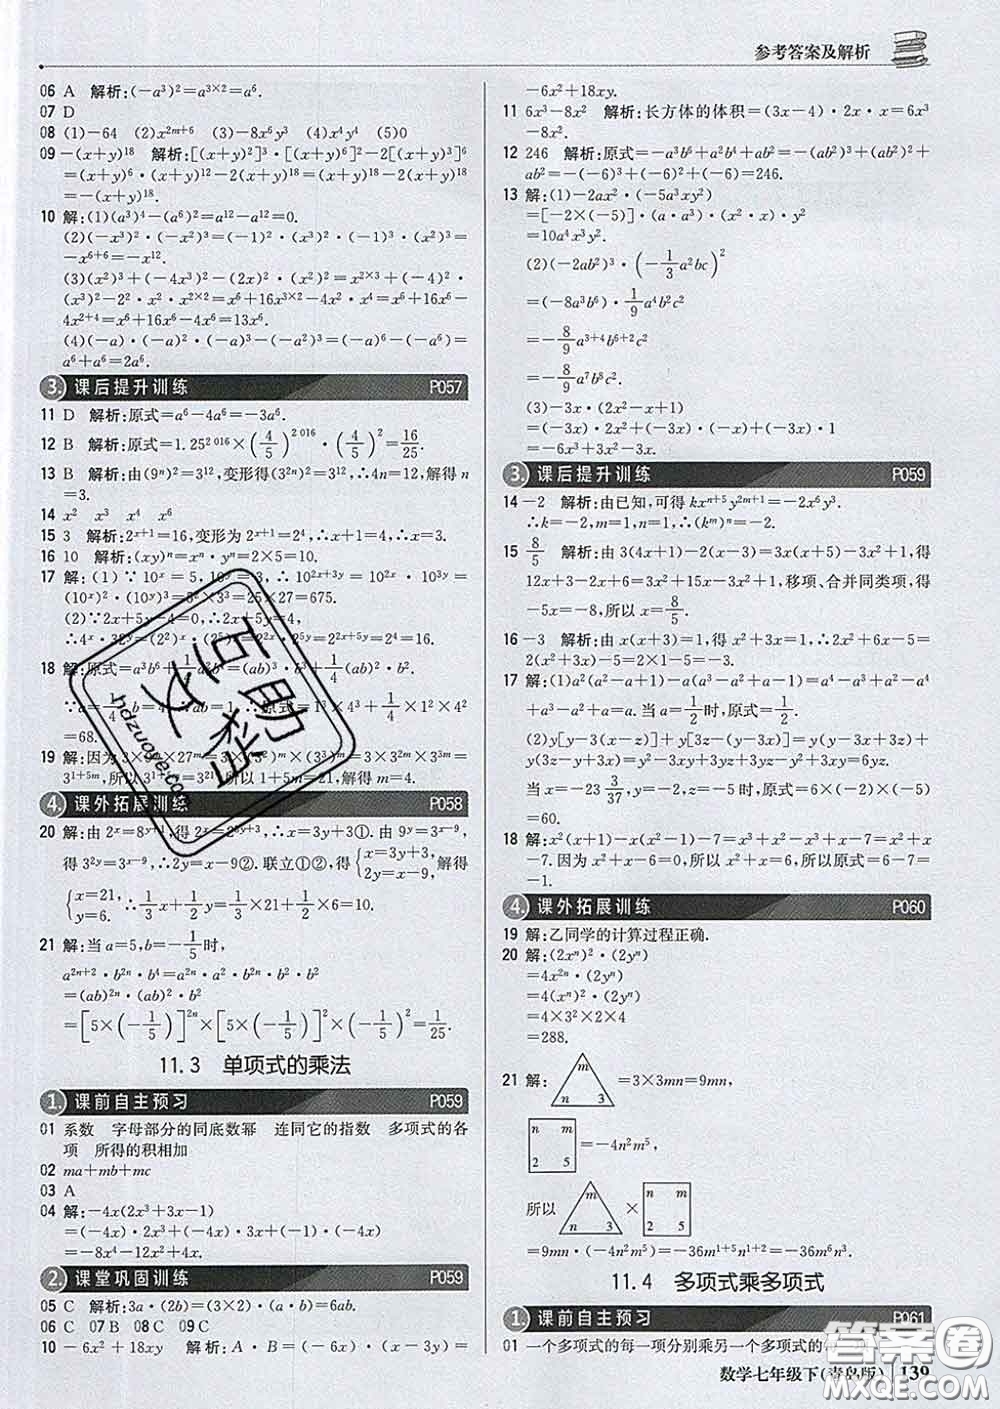 参考答案及解析
06 A 解析:(-a³)²=a^{3×2}=a⁶.
07 D
08 (1)-64 (2)x^{2m+6} (3)-8x⁶y³ (4)x⁴y⁴ (5)0
09 -(x+y)^{18} 解析:[(x+y)²]³·[(x+y)⁶]²-2[(x+y)³]⁶
=(x+y)⁶·(x+y)^{12}-2(x+y)^{18}=(x+y)^{18}-2(x+y)^{18}
=-(x+y)^{18}.
10 解:(1)(a³)⁴-(a⁶)²=a^{12}-a^{12}=0.
(2)(-x³)²·(-x²)³=(-1)²·(x³)²·(-1)³·(x²)³=
-x^{6+6}=-x^{12}.
(3)(x²)³+(-4x³)²-(2x)²·(x²)²=x^{2×3}+(-4)²·
(x³)²-2²·x²·x^{2×2}=x⁶+16x^{3×2}-4x²·x⁴=x⁶+16x⁶-
4x^{2+4}=x⁶+16x⁶-4x⁶=13x⁶.
(4)(-a)·(-a)²·(-a)³-(-a²)³=(-a)⁶-(-a⁶)=
a⁶+a⁶=2a⁶.
3. 课后提升训练 P057
11 D 解析:原式=a⁶-4a⁶=-3a⁶.
12 B 解析:原式=1.25^{2 016}×(4/5)^{2 016}·(4/5)²=16/25.
13 B 解析:由(9ⁿ)²=3^{12},变形得(3^{2n})²=3^{12},∴4n=12,解得n
=3.
14 x² x³ x⁴ x⁶
15 3 解析:2^{x+1}=16,变形为2^{x+1}=2⁴,∴x+1=4,∴x=3.
16 10 解析:(xy)ⁿ=xⁿ·yⁿ=2×5=10.
17 解:(1)∵10ˣ=5,10ʸ=3,∴10^{2x+3y}=10^{2x}·10^{3y}=
(10ˣ)²·(10ʸ)³=5²×3³=25×27=675.
(2)∵2x+5y-4=0,∴2x+5y=4,
∴4ˣ·32ʸ=(2²)ˣ·(2⁵)ʸ=2^{2x+5y}=2⁴=16.
18 解:原式=a³b⁶+1/4a²b⁴=(ab)³·b³+1/4(ab)²·b².
∵a=1/4,b=4,∴ab=1,∴原式=1³×4³+1/4×1²×4²
=68.
19 解:因为3×9ᵐ×27ᵐ=3×(3²)ᵐ×(3³)ᵐ=3×3^{2m}×3^{3m}=
3^{1+5m},所以3^{1+5m}=3^{21},所以1+5m=21,解得m=4.
4. 课外拓展训练 P058
20 解:由2ˣ=8^{y+1},得2ˣ=2^{3y+3},∴x=3y+3①.由9ʸ=3^{x-9},
得3^{2y}=3^{x-9},∴2y=x-9②.联立①②,得{x=3y+3, 2y=x-9,解得
{x=21, y=6. ∴1/3x+1/2y=1/3×21+1/2×6=10.
21 解:当a=5,b=-1/5时,
a^{2n+2}·b^{2n}·b⁴=a^{2n}·a²·b^{2n}·b²·b²
=(ab)^{2n}·(ab)²·b²
=[5×(-1/5)]^{2n}×[5×(-1/5)]²×(-1/5)²=1/25.
11.3 单项式的乘法
1. 课前自主预习 P059
01 系数 字母部分的同底数幂 连同它的指数 多项式的各
项 所得的积相加
02 ma+mb+mc
03 A
04 解:-4x(2x²+3x-1)
=(-4x)·2x²+(-4x)·3x+(-4x)·(-1)
=-8x³-12x²+4x.
2. 课堂巩固训练 P059
05 C 解析:3a·(2b)=(3×2)·(a·b)=6ab.
06 C 07 B 08 C 09 C
10 -6x²+18xy 解析:A·B=(-6x)·(x-3y)=
-6x²+18xy.
11 6x³-8x² 解析:长方体的体积=(3x-4)·2x·x=6x³
-8x².
12 246 解析:原式=-a³b⁶+a²b⁴+ab²=-(ab²)³+(ab²)²+
ab²=-(-6)³+(-6)²+(-6)=246.
13 解:(1)-2ax²·(-5a³xy²)
=[-2×(-5)]·(a·a³)·(x²·x)·y²
=10a⁴x³y².
(2)(-2ab²)³·(-1/3a²bc)²
=(-8a³b⁶)·1/9a⁴b²c²
=-8/9a^{3+4}b^{6+2}c²
=-8/9a⁷b⁸c².
(3)-3x·(2x²-x+1)
=(-3x)·2x²+(-3x)·(-x)+(-3x)·1
=-6x³+3x²-3x.
3. 课后提升训练 P059
14 -2 解析:由已知,可得kx^{n+5}y^{2m+1}=-2x⁶y³.
∴k=-2,m=1,n=1,∴(kᵐ)ⁿ=-2.
15 8/5 解析:由3(4x+1)-2x(x-3)=2x(5-x)+11x+11,得
12x+3-2x²+6x=10x-2x²+11x+11,移项、合并同类项,得
-5x=8,所以x=8/5.
16 -3 解析:由x(x+3)=1,得x²+3x=1,∴2x²+6x-5=
2(x²+3x)-5=2×1-5=-3.
17 解:(1)a²(a²-a+1)-a(a³-a²+a-1)=a⁴-a³+a²-a⁴
+a³-a²+a=a.当a=1/2时,原式=a=1/2.
(2)y[y-3(x-z)]+y[3z-(y-3x)]=y(y-3x+3z)+
y(3z-y+3x)=y²-3xy+3yz+3yz-y²+3xy=6yz.
当x=-23 3/37,y=-2,z=-5时,原式=6×(-2)×(-5)
=60.
18 解:x²(x+1)-x(x²-1)-7=x³+x²-x³+x-7=x²+x
-7.因为x²+x-6=0,所以x²+x=6,所以原式=6-7=
-1.
4. 课外拓展训练 P060
19 解:乙同学的计算过程正确.
20 解:(2xⁿ)²·(2yⁿ)
=4x^{2n}·(2yⁿ)
=4(xⁿ)²·(2yⁿ)
=4×3²×2×4
=288.
21 解: m n 3 =3×3mn=9mn,
n m 2 5 =-4n²m⁵,
所以 m n 3 × n m 2 5
=9mn·(-4n²m⁵)=-36m^{1+5}n^{1+2}=-36m⁶n³.
11.4 多项式乘多项式
1. 课前自主预习 P061
01 一个多项式的每一项分别乘另一个多项式的
数学七年级下(青岛版) 139
互助文档
hdzuoye.com
答案圈
MXQE.COM